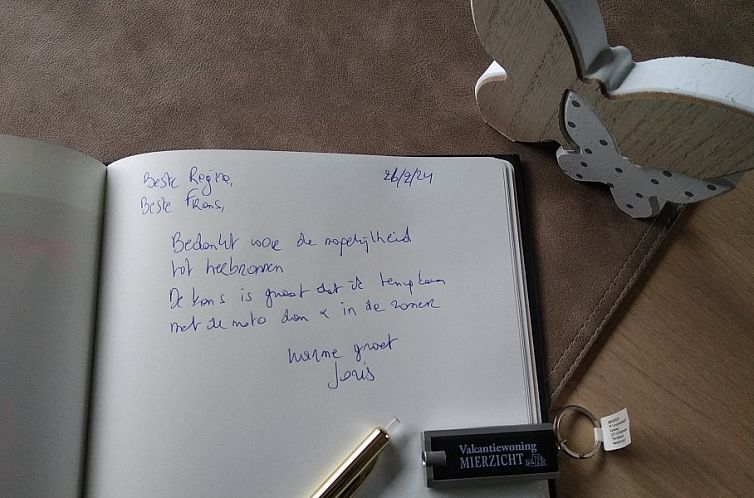 Beste Regina,
26/2/24
Beste Frans,
Bedankt voor de mogelijkheid
tot herbronnen
De kans is groot dat ik terug kom
met de moto dan in de zomer
Warme groet
Joris
Vakantiewoning
MIERZICHT